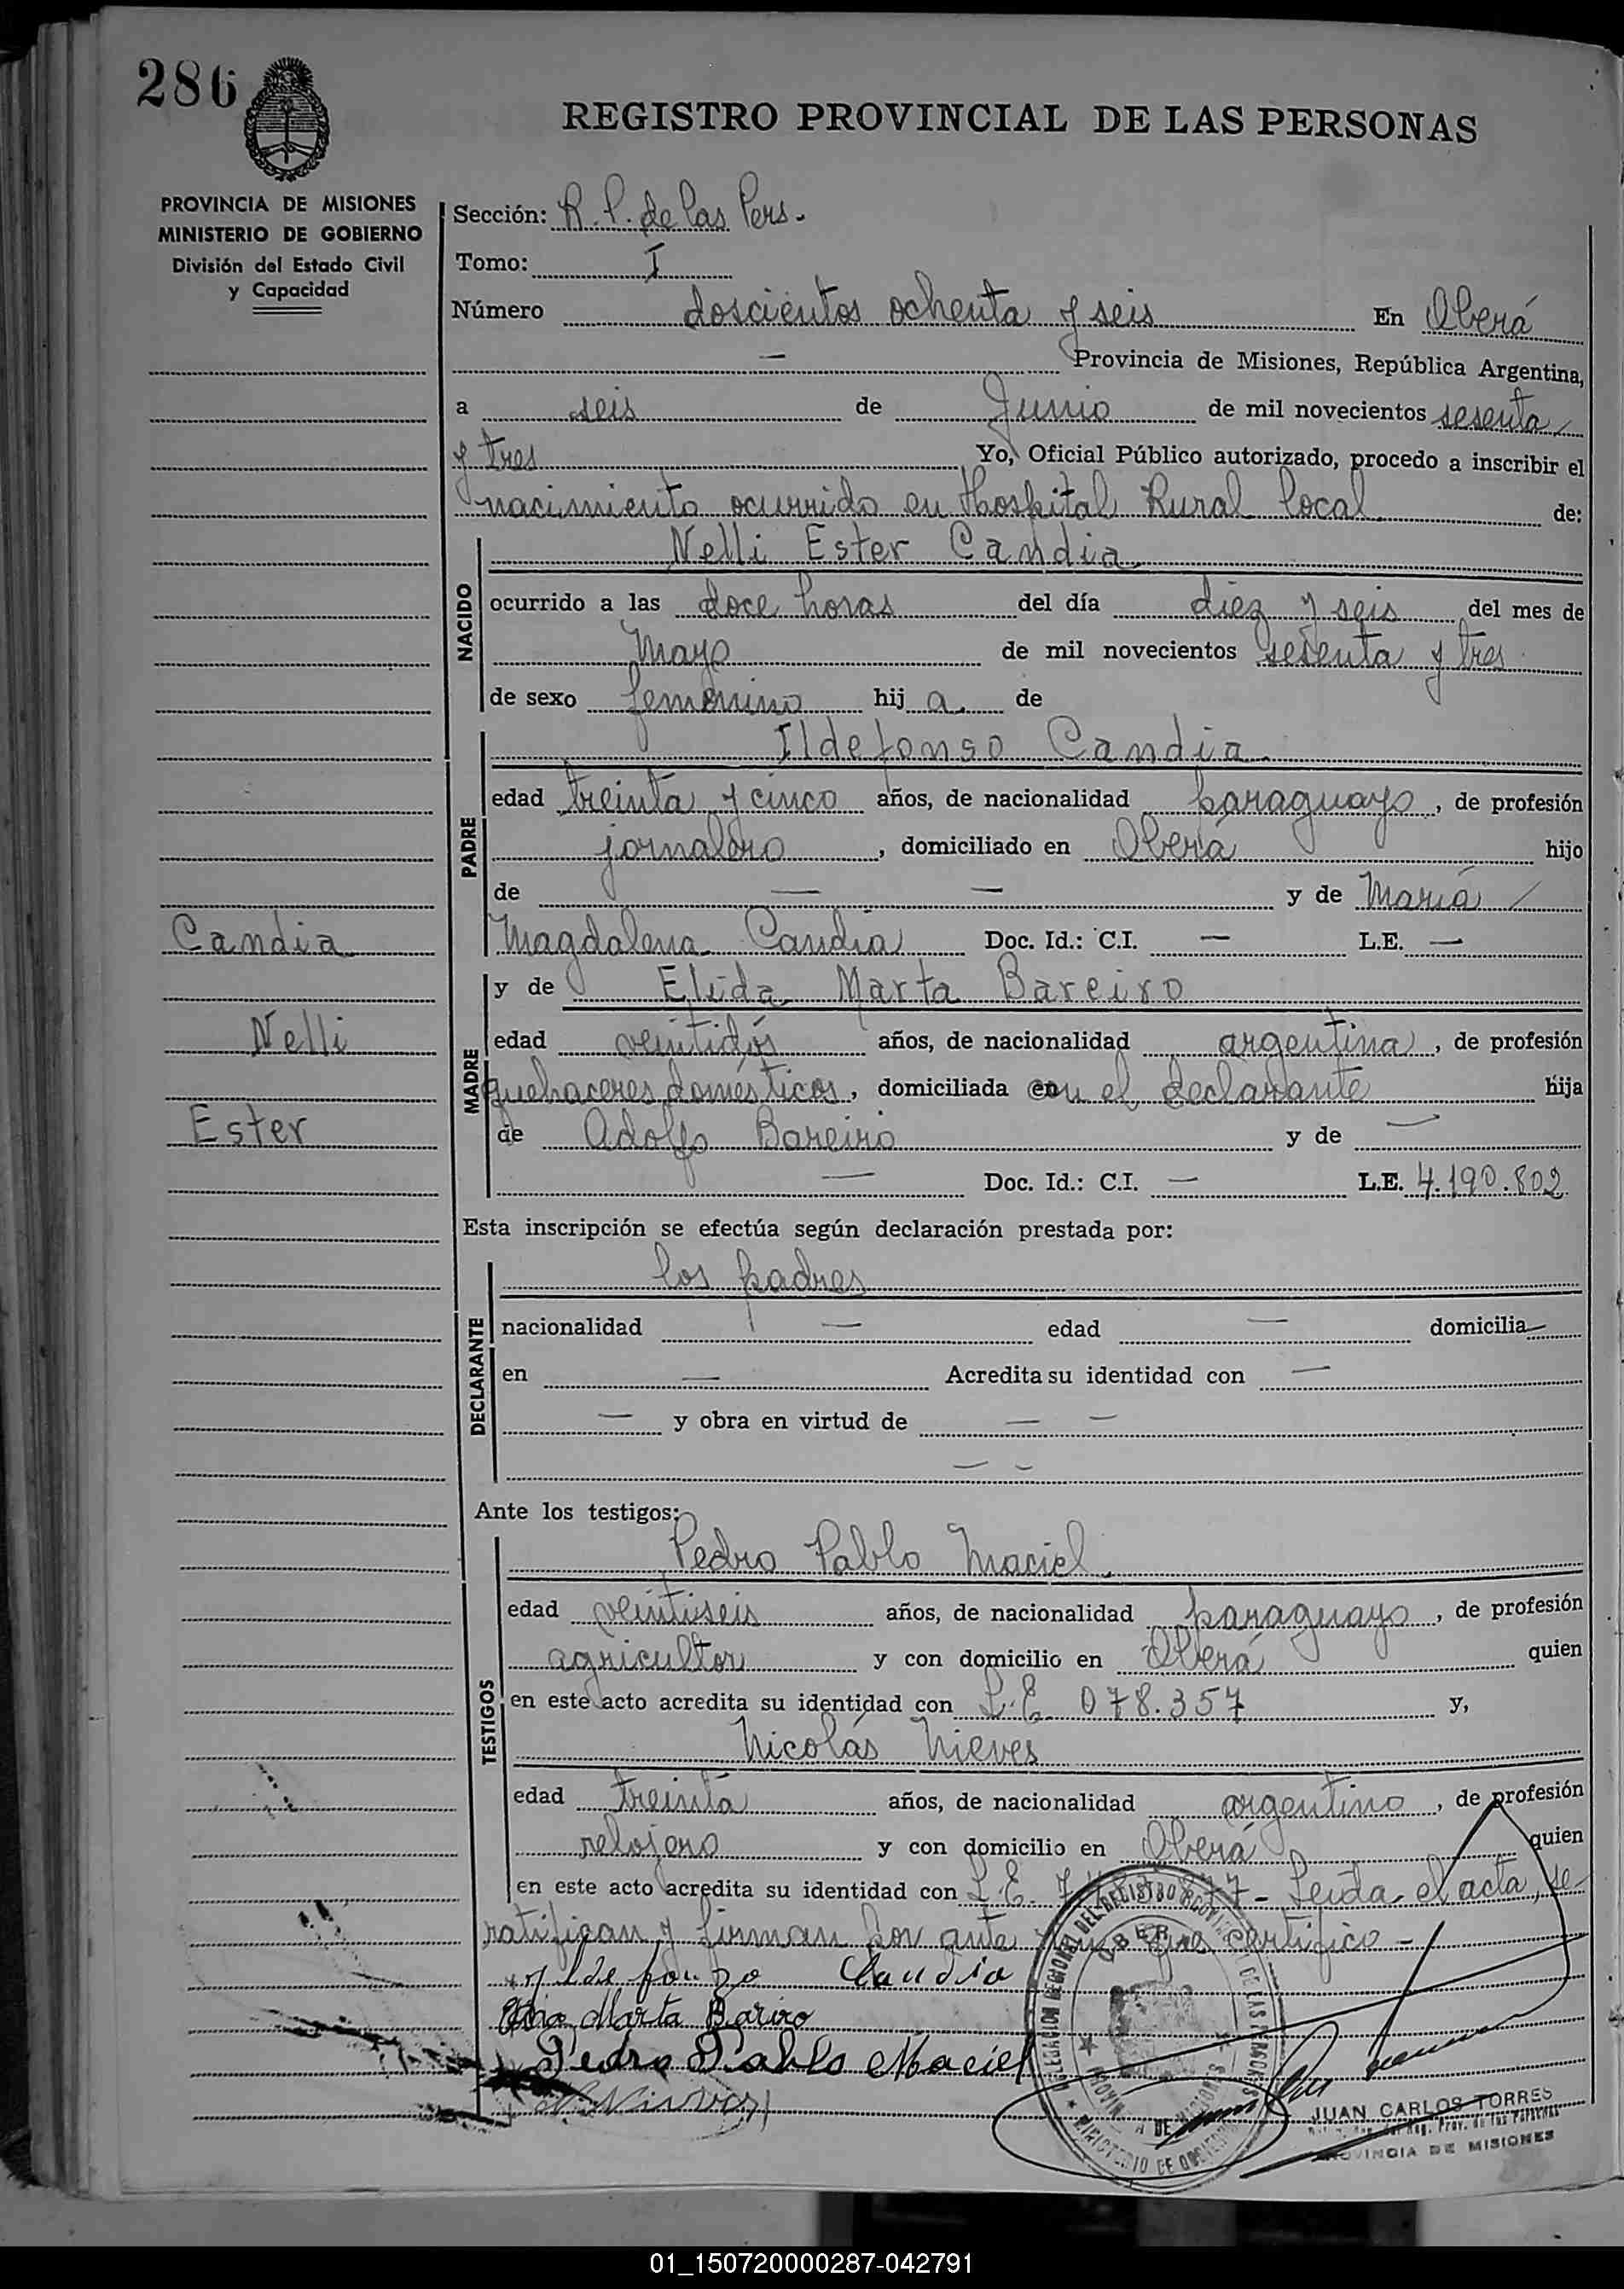 286
REGISTRO PROVINCIAL DE LAS PERSONAS
PROVINCIA DE MISIONES
MINISTERIO DE GOBIERNO
División del Estado Civil
y Capacidad
Sección: R. P. de las Pers.
Tomo: I
Número doscientos ochenta y seis En Oberá
— Provincia de Misiones, República Argentina,
a seis de Junio de mil novecientos sesenta
y tres Yo, Oficial Público autorizado, procedo a inscribir el
nacimiento ocurrido en Hospital Rural local de:
NACIDO
Nelli Ester Candia
ocurrido a las doce horas del día diez y seis del mes de
Mayo de mil novecientos sesenta y tres
de sexo femenino hij a. de
PADRE
Ildefonso Candia
edad treinta y cinco años, de nacionalidad paraguayo, de profesión
jornalero, domiciliado en Oberá hijo
de — — y de María
Magdalena Candia Doc. Id.: C.I. — L.E. —
Candia
Nelli
Ester
MADRE
y de Elida Marta Bareiro
edad veintidós años, de nacionalidad argentina, de profesión
quehaceres domésticos, domiciliada con el declarante hija
de Adolfo Bareiro y de —
— Doc. Id.: C.I. — L.E. 4.190.802
Esta inscripción se efectúa según declaración prestada por:
DECLARANTE
los padres
nacionalidad — edad — domicilia—
en — Acredita su identidad con —
— y obra en virtud de — —
— —
Ante los testigos:
TESTIGOS
Pedro Pablo Maciel.
edad veintiseis años, de nacionalidad paraguayo, de profesión
agricultor y con domicilio en Oberá quien
en este acto acredita su identidad con L.E. 078.357 y,
Nicolás Nieves
edad treinta años, de nacionalidad argentino, de profesión
relojero y con domicilio en Oberá quien
en este acto acredita su identidad con L.E. - Leida el acta, se
ratifican y firman por ante que certifico -
Ildefonzo Candia
Marta Bariro
Pedro Pablo Maciel
DELEGACION REGIONAL DEL REGISTRO PROVINCIAL DE LAS PERSONAS
OBERA
MINISTERIO DE GOBIERNO
JUAN CARLOS TORRES
Reg. Prov. de las Personas
PROVINCIA DE MISIONES
01_150720000287-042791